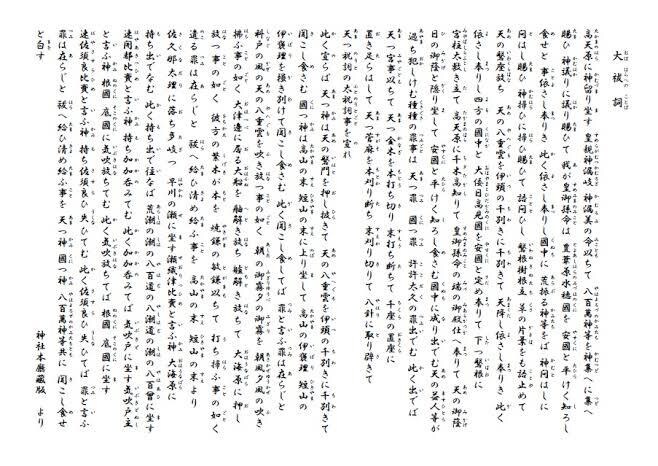 大祓詞
高天原に神留り坐す 皇親神漏岐 神漏美の命以ちて 八百萬神等を神集へに集へ
賜ひ 神議りに議り賜ひて 我が皇御孫命は 豊葦原水穂國を 安國と平けく知ろし
食せと 事依さし奉りき 此く依さし奉りし國中に 荒振る神等をば 神問はしに
問はし賜ひ 神掃ひに掃ひ賜ひて 語問ひし 磐根樹根立 草の片葉をも語止めて
天の磐座放ち 天の八重雲を 伊頭の千別きに千別きて 天降し依さし奉りき 此く
依さし奉りし四方の國中と 大倭日高見國を安國と定め奉りて 下つ磐根に
宮柱太敷き立て 高天原に千木高知りて 皇御孫命の瑞の御殿仕へ奉りて 天の御蔭
日の御蔭と隠り坐して 安國と平けく知ろし食さむ國中に成り出でむ天の益人等が
過ち犯しけむ種種の罪事は 天つ罪 國つ罪 許許太久の罪出でむ 此く出でば
天つ宮事以ちて 天つ金木を本打ち切り 末打ち断ちて 千座の置座に
置き足らはして 天つ菅麻を本刈り断ち 末刈り切りて 八針に取り辟きて
天つ祝詞の太祝詞事を宣れ
此く宣らば 天つ神は天の磐門を押し披きて 天の八重雲を伊頭の千別きに千別きて
聞こし食さむ 國つ神は高山の末 短山の末に上り坐して 高山の伊褒理 短山の
伊褒理を掻き別けて聞こし食さむ 此く聞こし食してば 罪と言ふ罪は在らじと
科戸の風の天の八重雲を吹き放つ事の如く 朝の御霧 夕の御霧を 朝風 夕風の吹き
拂ふ事の如く 大津邊に居る大船を 舳解き放ち 艫解き放ちて 大海原に押し
放つ事の如く 彼方の繁木が本を 焼鎌の敏鎌以ちて 打ち掃ふ事の如く
遺る罪は在らじと 祓へ給ひ清め給ふ事を 高山の末 短山の末より
佐久那太理に落ち多岐つ 早川の瀬に坐す瀬織津比賣と言ふ神 大海原に
持ち出でなむ 此く持ち出で往なば 荒潮の潮の八百道の八潮道の潮の八百會に坐す
速開都比賣と言ふ神 持ち加加呑みてむ 此く加加呑みてば 氣吹戸に坐す氣吹戸主
と言ふ神 根國 底國に氣吹放ちてむ 此く氣吹放ちてば 根國 底國に坐す
速佐須良比賣と言ふ神 持ち佐須良ひ失ひてむ 此く佐須良ひ失ひてば 罪と言ふ
罪は在らじと 祓へ給ひ清め給ふ事を 天つ神 國つ神 八百萬神等共に 聞こし食せ
と白す
神社本廳蔵版 より